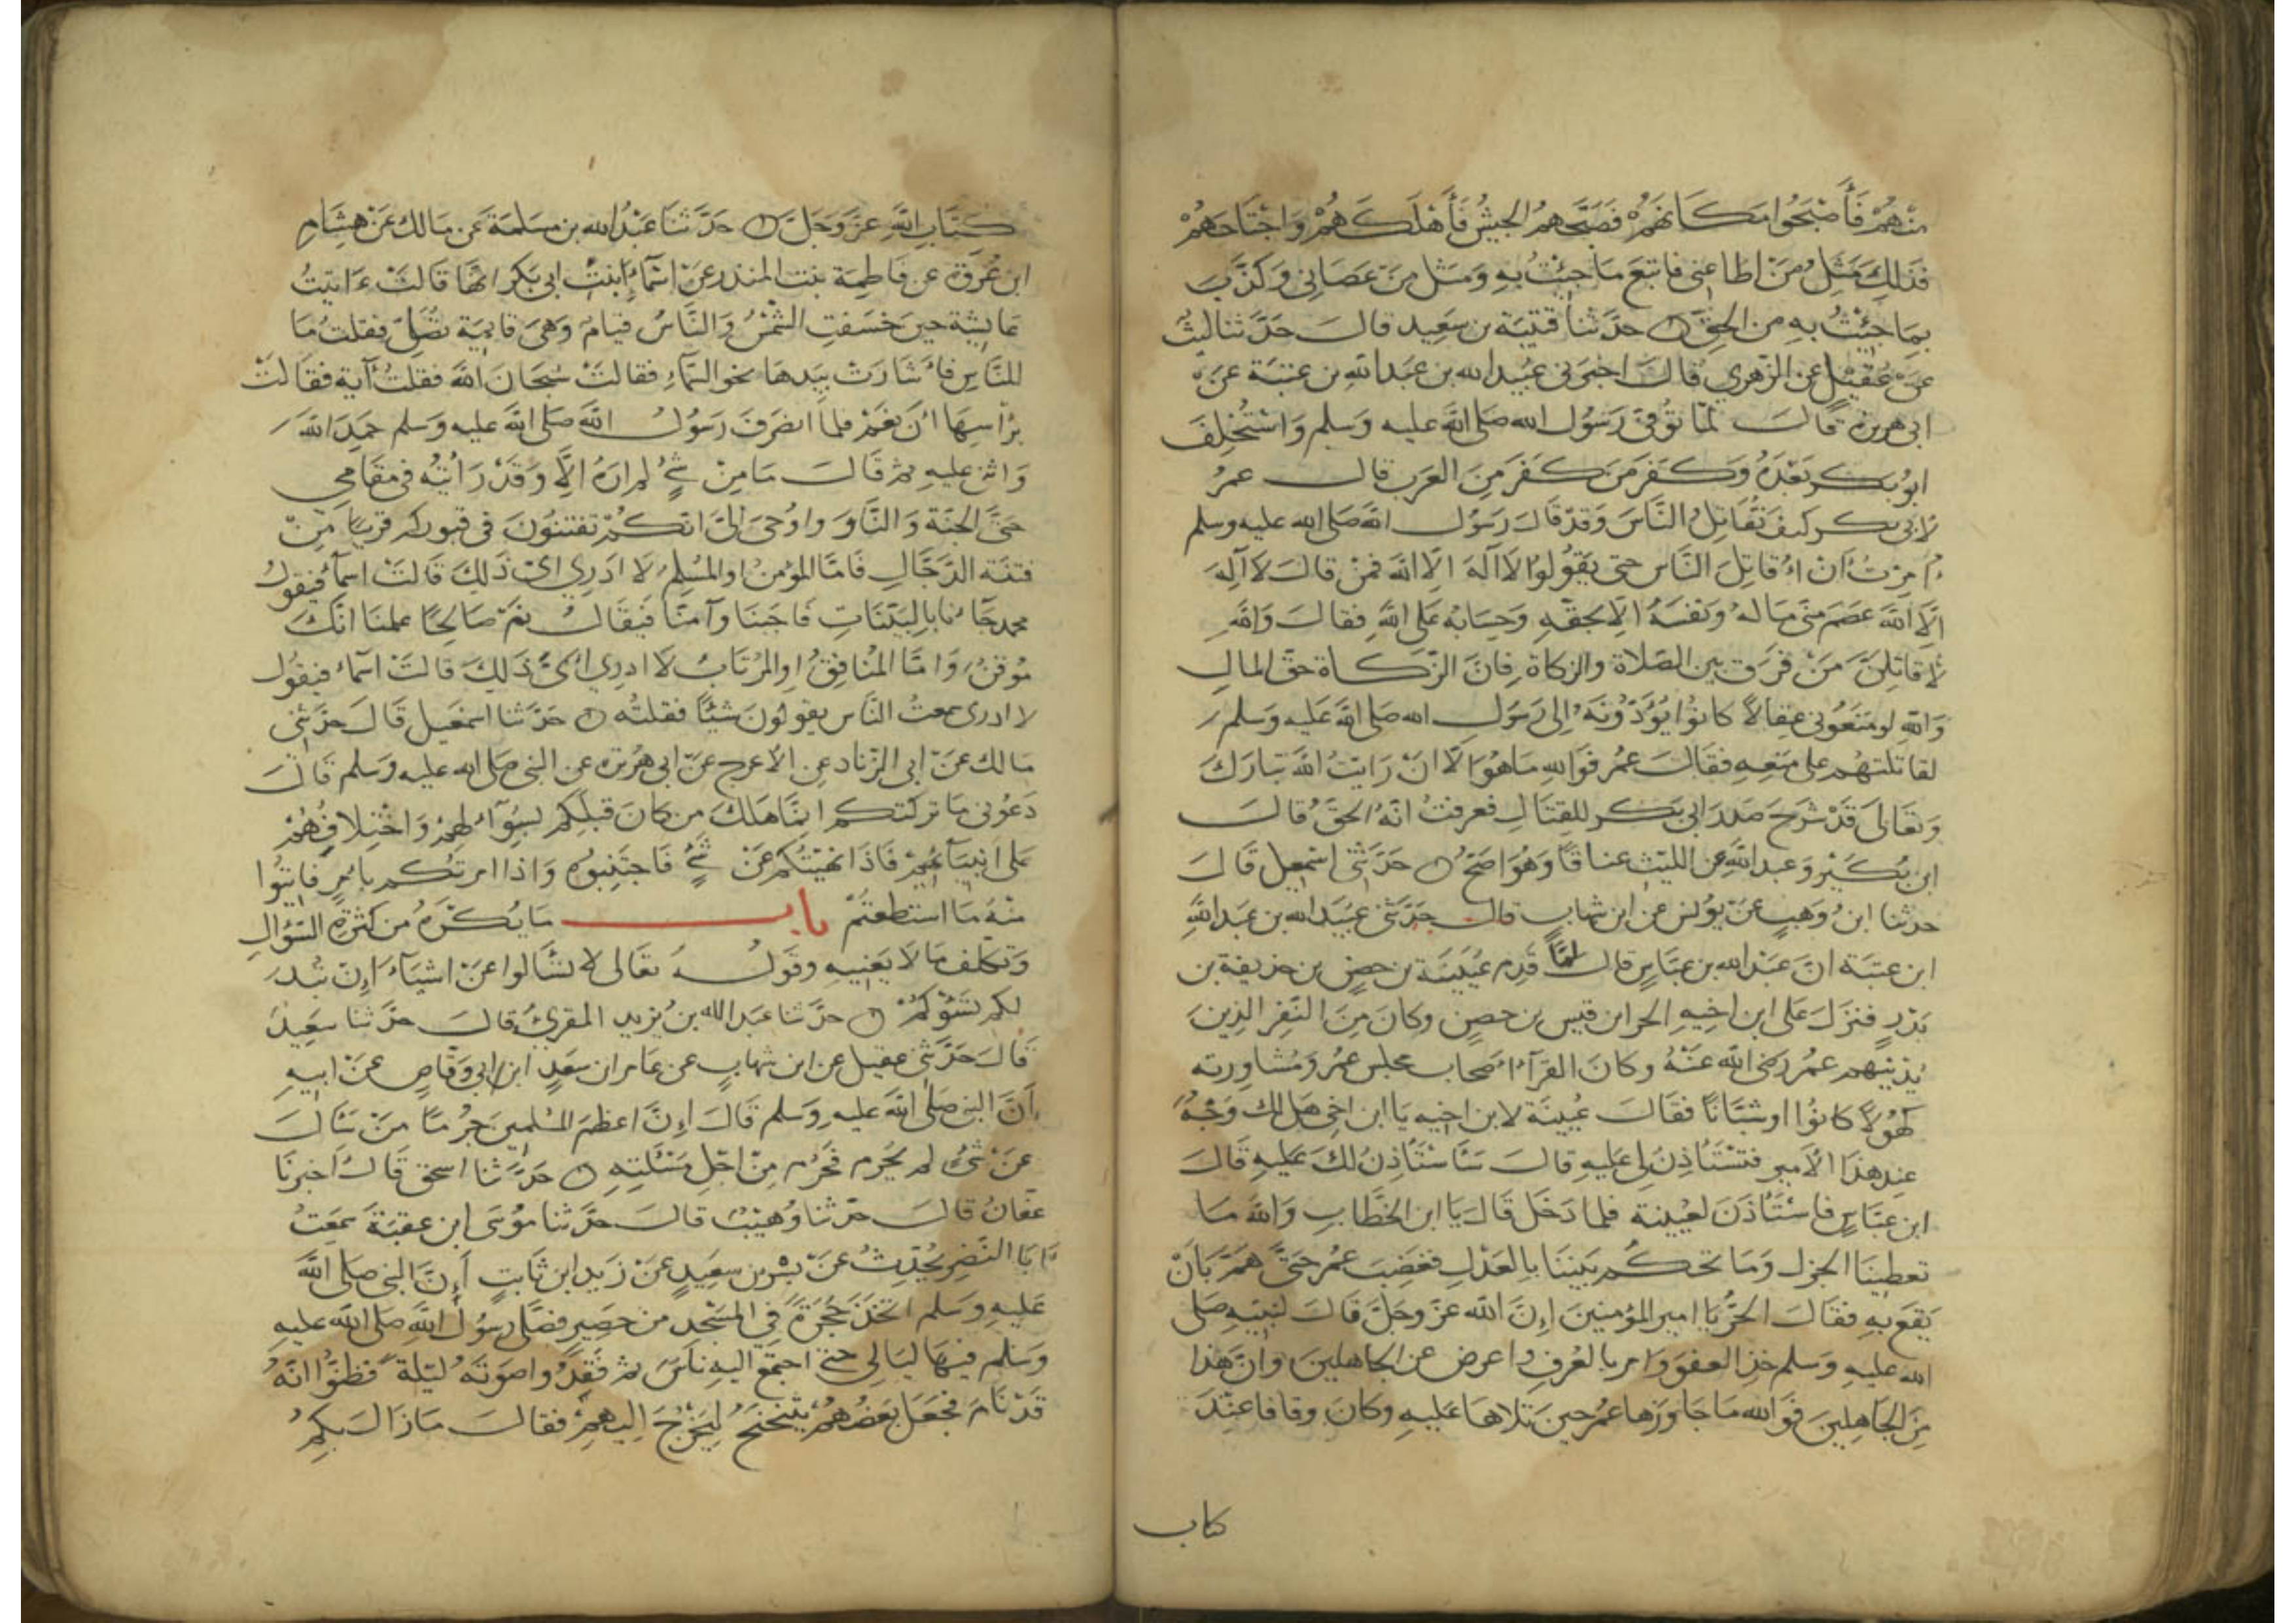 منهم فأصبحوا مكانهم فصبحهم الجيش فأهلكهم واجتاحهم
فذلك مثل من اطاعني فاتبع ما جئت به ومثل من عصاني وكذب
بما جئت به من الحق حدثنا قتيبة بن سعيد قال حدثنا ليث
عن عقيل عن الزهري قال اخبرني عبيد الله بن عبد الله بن عتبة عن
ابي هريرة قال لما توفي رسول الله صلى الله عليه وسلم واستخلف
ابو بكر بعده وكفر من كفر من العرب قال عمر
لابي بكر كيف تقاتل الناس وقد قال رسول الله صلى الله عليه وسلم
امرت أن اقاتل الناس حتى يقولوا لا اله الا الله فمن قال لا اله
الا الله عصم مني ماله ونفسه الا بحقه وحسابه على الله فقال والله
لاقاتلن من فرق بين الصلاة والزكاة فان الزكاة حق المال
والله لو منعوني عقالا كانوا يؤدونه الى رسول الله صلى الله عليه وسلم
لقاتلتهم على منعه فقال عمر فوالله ما هو الا ان رايت الله تبارك
وتعالى قد شرح صدر ابي بكر للقتال فعرفت انه الحق قال
ابن بكير وعبد الله عن الليث عناقا وهو اصح حدثني اسمعيل قال
حدثنا ابن وهب عن يونس عن ابن شهاب قال حدثني عبيد الله بن عبد الله
ابن عتبة ان عبد الله بن عباس قال لما قدم عيينة بن حصن بن حذيفة بن
بدر فنزل على ابن اخيه الحر ابن قيس بن حصن وكان من النفر الذين
يدنيهم عمر رضى الله عنه وكان القرآء اصحاب مجلس عمر ومشاورته
كهولا كانوا او شبانا فقال عيينة لابن اخيه يا ابن اخي هل لك وجه
عند هذا الامير فتستأذن لي عليه قال سأستأذن لك عليه قال
ابن عباس فاستأذن لعيينة فلما دخل قال يا ابن الخطاب والله ما
تعطينا الجزل وما تحكم بيننا بالعدل فغضب عمر حتى هم بان
يقع به فقال الحر يا امير المؤمنين إن الله عز وجل قال لنبيه صلى
الله عليه وسلم خذ العفو وامر بالعرف واعرض عن الجاهلين وان هذا
من الجاهلين فوالله ما جاوزها عمر حين تلاها عليه وكان وقافا عند
كتاب
كتاب الله عز وجل حدثنا عبد الله بن مسلمة عن مالك عن هشام
ابن عروة عن فاطمة بنت المنذر عن اسمآء ابنت ابي بكر انها قالت ءاتيت
عايشة حين خسفت الشمس والناس قيام وهي قايمة تصلي فقلت ما
للناس فأشارت بيدها نحو السمآء فقالت سبحان الله فقلت آية فقالت
برأسها أن نعم فلما انصرف رسول الله صلى الله عليه وسلم حمد الله
واثنى عليه ثم قال ما من شئ لم اره الا وقد رأيته في مقامي
حتى الجنة والنار واوحى الى انكم تفتنون في قبوركم قريبا من
فتنة الدجال فاما المؤمن او المسلم لا ادري اى ذلك قالت اسمآء فيقول
محمد جاءنا بالبينات فاجبنا وآمنا فيقال نم صالحا علمنا انك
موقن واما المنافق او المرتاب لا ادري اى ذلك قالت اسمآء فيقول
لا ادرى سمعت الناس يقولون شيئا فقلته حدثنا اسمعيل قال حدثني
مالك عن ابي الزناد عن الاعرج عن ابي هريرة عن النبي صلى الله عليه وسلم قال
دعوني ما تركتكم انما هلك من كان قبلكم بسؤالهم واختلافهم
على انبيآءهم فاذا نهيتكم عن شئ فاجتنبوه واذا امرتكم بامر فاتوا
منه ما استطعتم باب ما يكره من كثرة السؤال
وتكلف ما لا يعنيه وقوله تعالى لا تسئالوا عن اشيآء إن تبد
لكم تسؤكم حدثنا عبد الله بن يزيد المقرئ قال حدثنا سعيد
قال حدثني عقيل عن ابن شهاب عن عامر ابن سعد ابن ابي وقاص عن ابيه
أن النبي صلى الله عليه وسلم قال إن اعظم المسلمين جرما من سأل
عن شئ لم يحرم فحرم من اجل مسئلته حدثنا اسحق قال اخبرنا
عفان قال حدثنا وهيب قال حدثنا موسى ابن عقبة سمعت
أبا النضر يحدث عن بسر بن سعيد عن زيد ابن ثابت أن النبي صلى الله
عليه وسلم اتخذ حجرة في المسجد من حصير فصلى رسول الله صلى الله عليه
وسلم فيها ليالي حتى اجتمع اليه ناس ثم فقدوا صوته ليلة فظنوا انه
قد نام فجعل بعضهم يتنحنح ليخرج اليهم فقال ما زال بكم